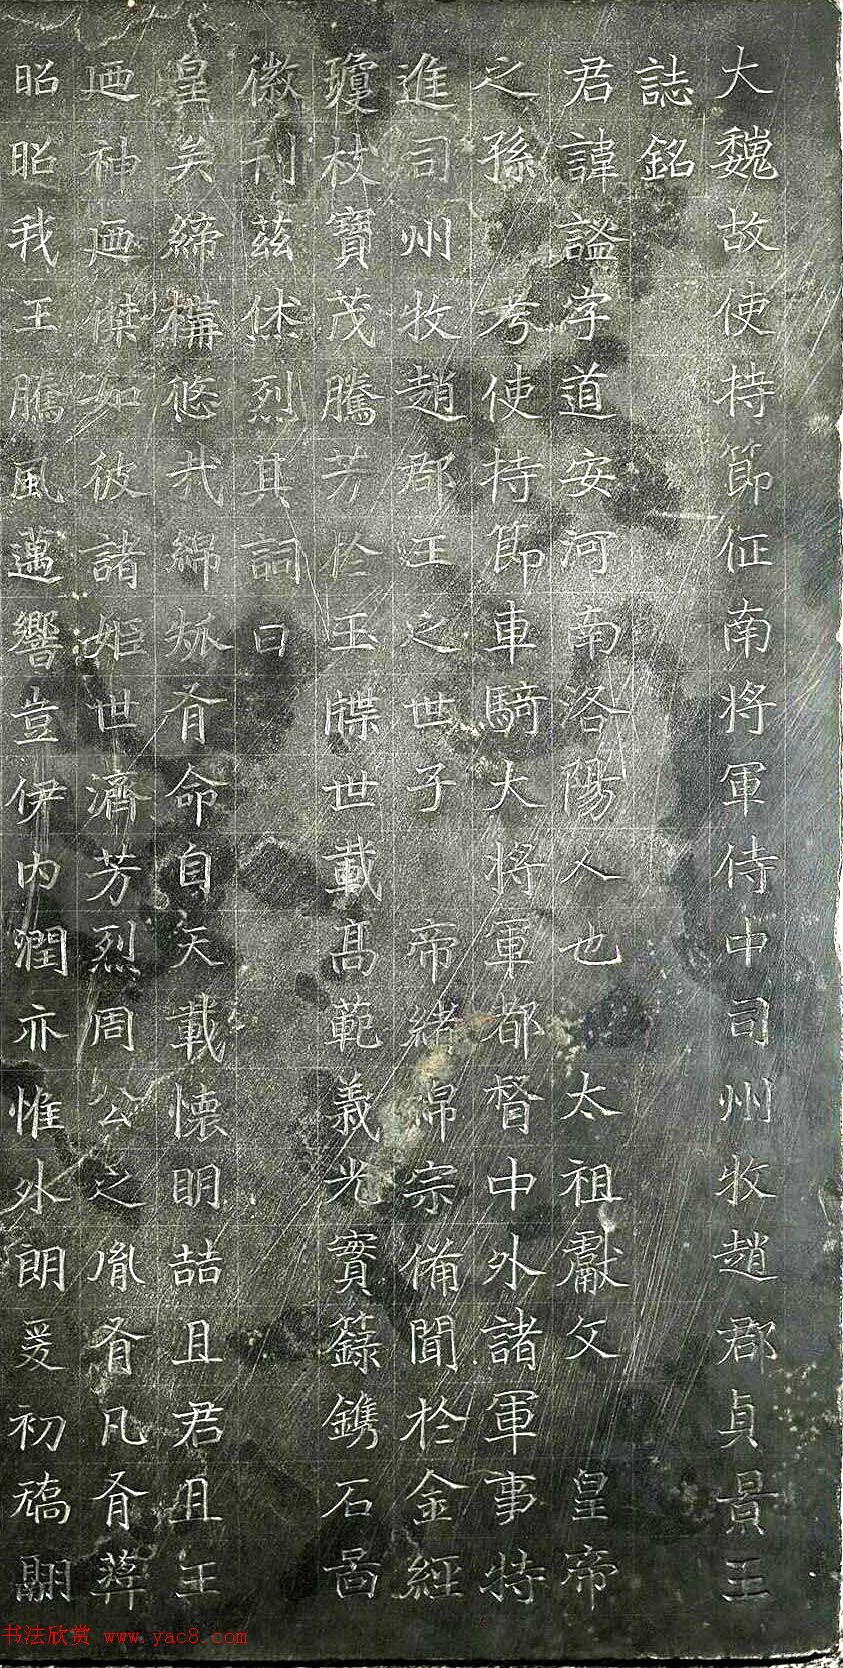 大魏故使持節征南將軍侍中司州牧趙郡貞景王
誌銘
君諱謐字道安河南洛陽人也 太祖獻文 皇帝
之孫 考使持節車騎大將軍都督中外諸軍事特
進司州牧趙郡王之世子 帝緒綿宗備聞於金經
瓊枝寶茂騰芳於玉牒世載高範義光實籙鐫石啚
徽刊茲烋烈其詞曰
皇矣締構悠哉綿瓞有命自天載懷明喆且君且王
迺神迺傑如彼諸姬世濟芳烈周公之胤有凡有蔣
昭昭我王騰風邁響豈伊內潤亦惟外朗爰初矯翮
书法欣赏 www.yac8.com